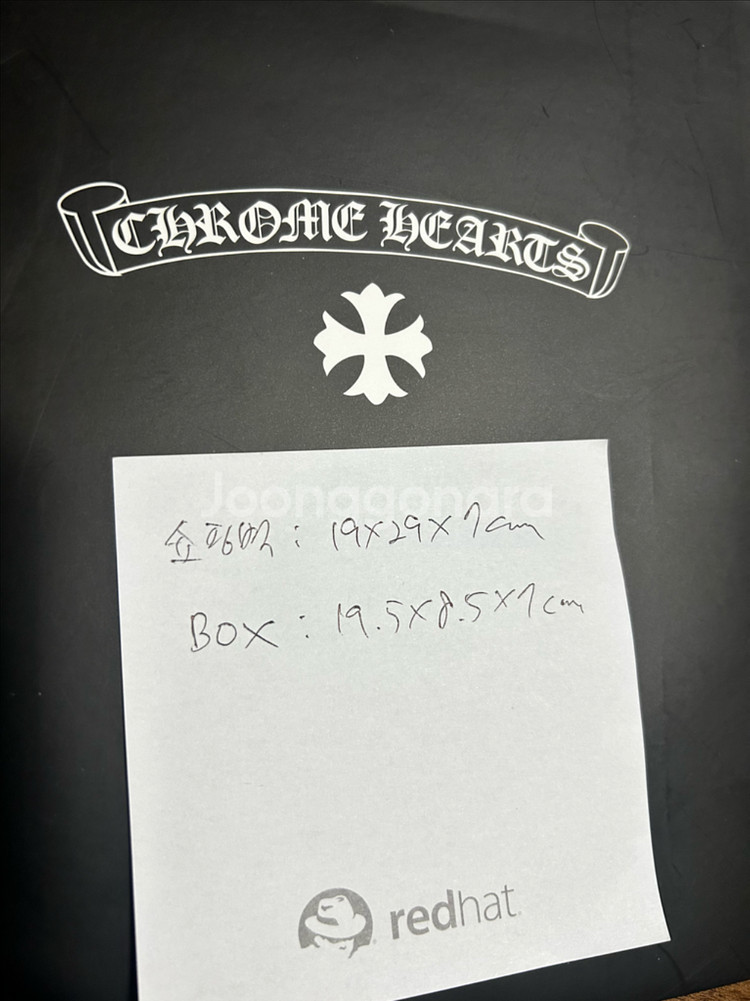 CHROME HEARTS
Joonggonara
쇼핑백 : 19X29X7cm
BOX : 19.5X8.5X7cm
redhat